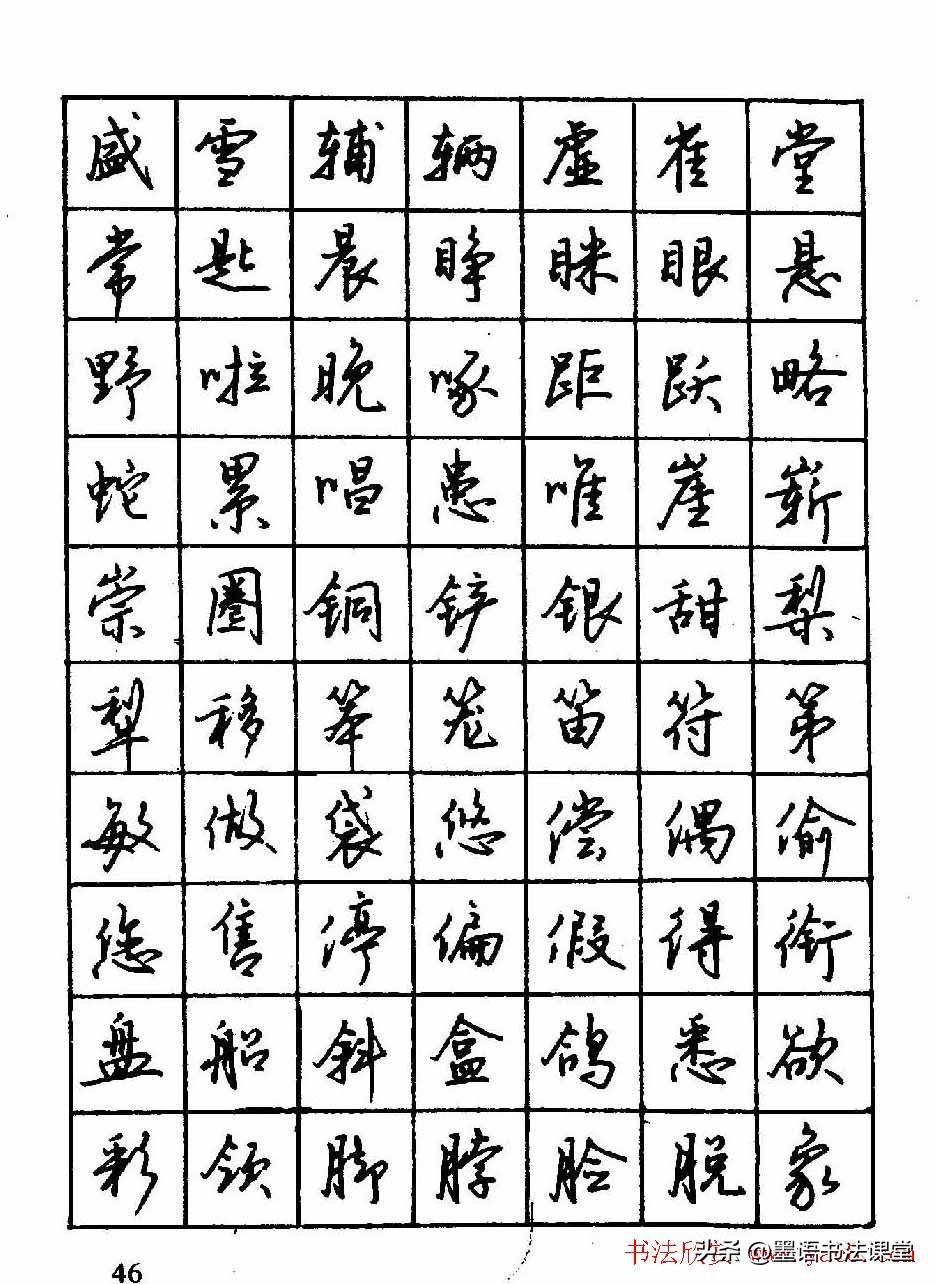 盛雪辅辆虚雀堂
常匙晨睁眯眼悬
野啦晚啄距跃略
蛇累唱患唯崖崭
崇圈铜铲银甜梨
犁移笨笼笛符第
敏做袋悠偿偶偷
您售停偏假得衔
盘船斜盒鸽悉欲
彩领脚脖脸脱象
46
书法欣赏
头条@墨语书法课堂